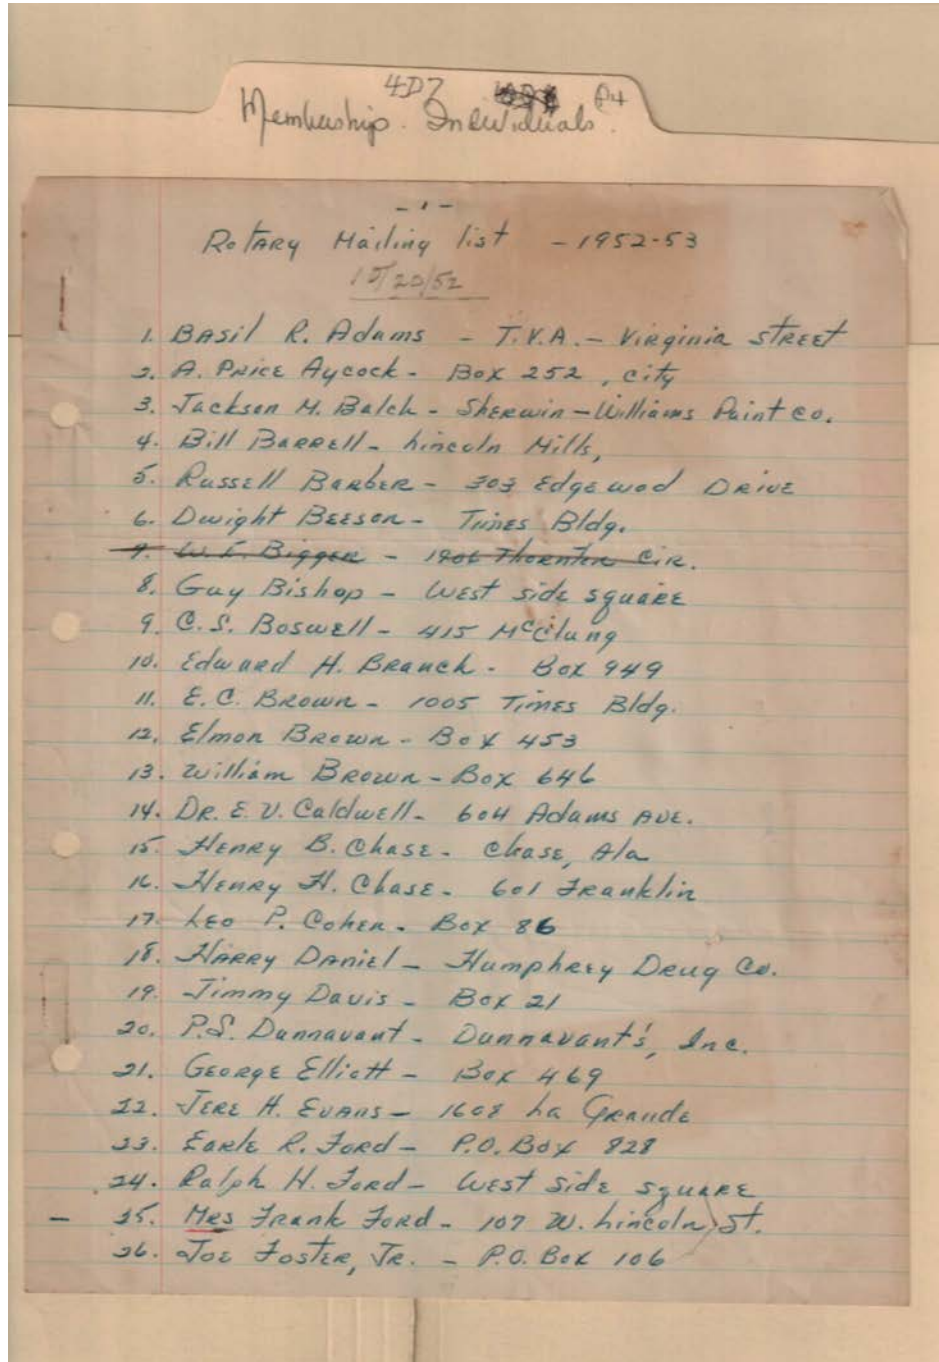 4D7 P4
Membership. Individuals.
- 1 -
Rotary Mailing list - 1952-53
10/20/52
1. Basil R. Adams - T.V.A. - Virginia Street
2. A. Price Aycock - Box 252, city
3. Jackson M. Balch - Sherwin-Williams Paint Co.
4. Bill Barrell - Lincoln Mills,
5. Russell Barber - 303 Edgewod Drive
6. Dwight Beeson - Times Bldg.
7. W. F. Bigger - 1906 Thornton Cir.
8. Guy Bishop - West side square
9. C. S. Boswell - 415 McClung
10. Edward H. Branch - Box 949
11. E. C. Brown - 1005 Times Bldg.
12. Elmon Brown - Box 453
13. William Brown - Box 646
14. Dr. E. V. Caldwell - 604 Adams Ave.
15. Henry B. Chase - Chase, Ala
16. Henry H. Chase - 601 Franklin
17. Leo P. Cohen - Box 86
18. Harry Daniel - Humphrey Drug Co.
19. Jimmy Davis - Box 21
20. P.S. Dunnavant - Dunnavant's, Inc.
21. George Elliott - Box 469
22. Jere H. Evans - 1608 La Grande
23. Earle R. Ford - P.O. Box 828
24. Ralph H. Ford - West side square
- 25. Mrs Frank Ford - 107 W. Lincoln St.
26. Joe Foster, Jr. - P.O. Box 106